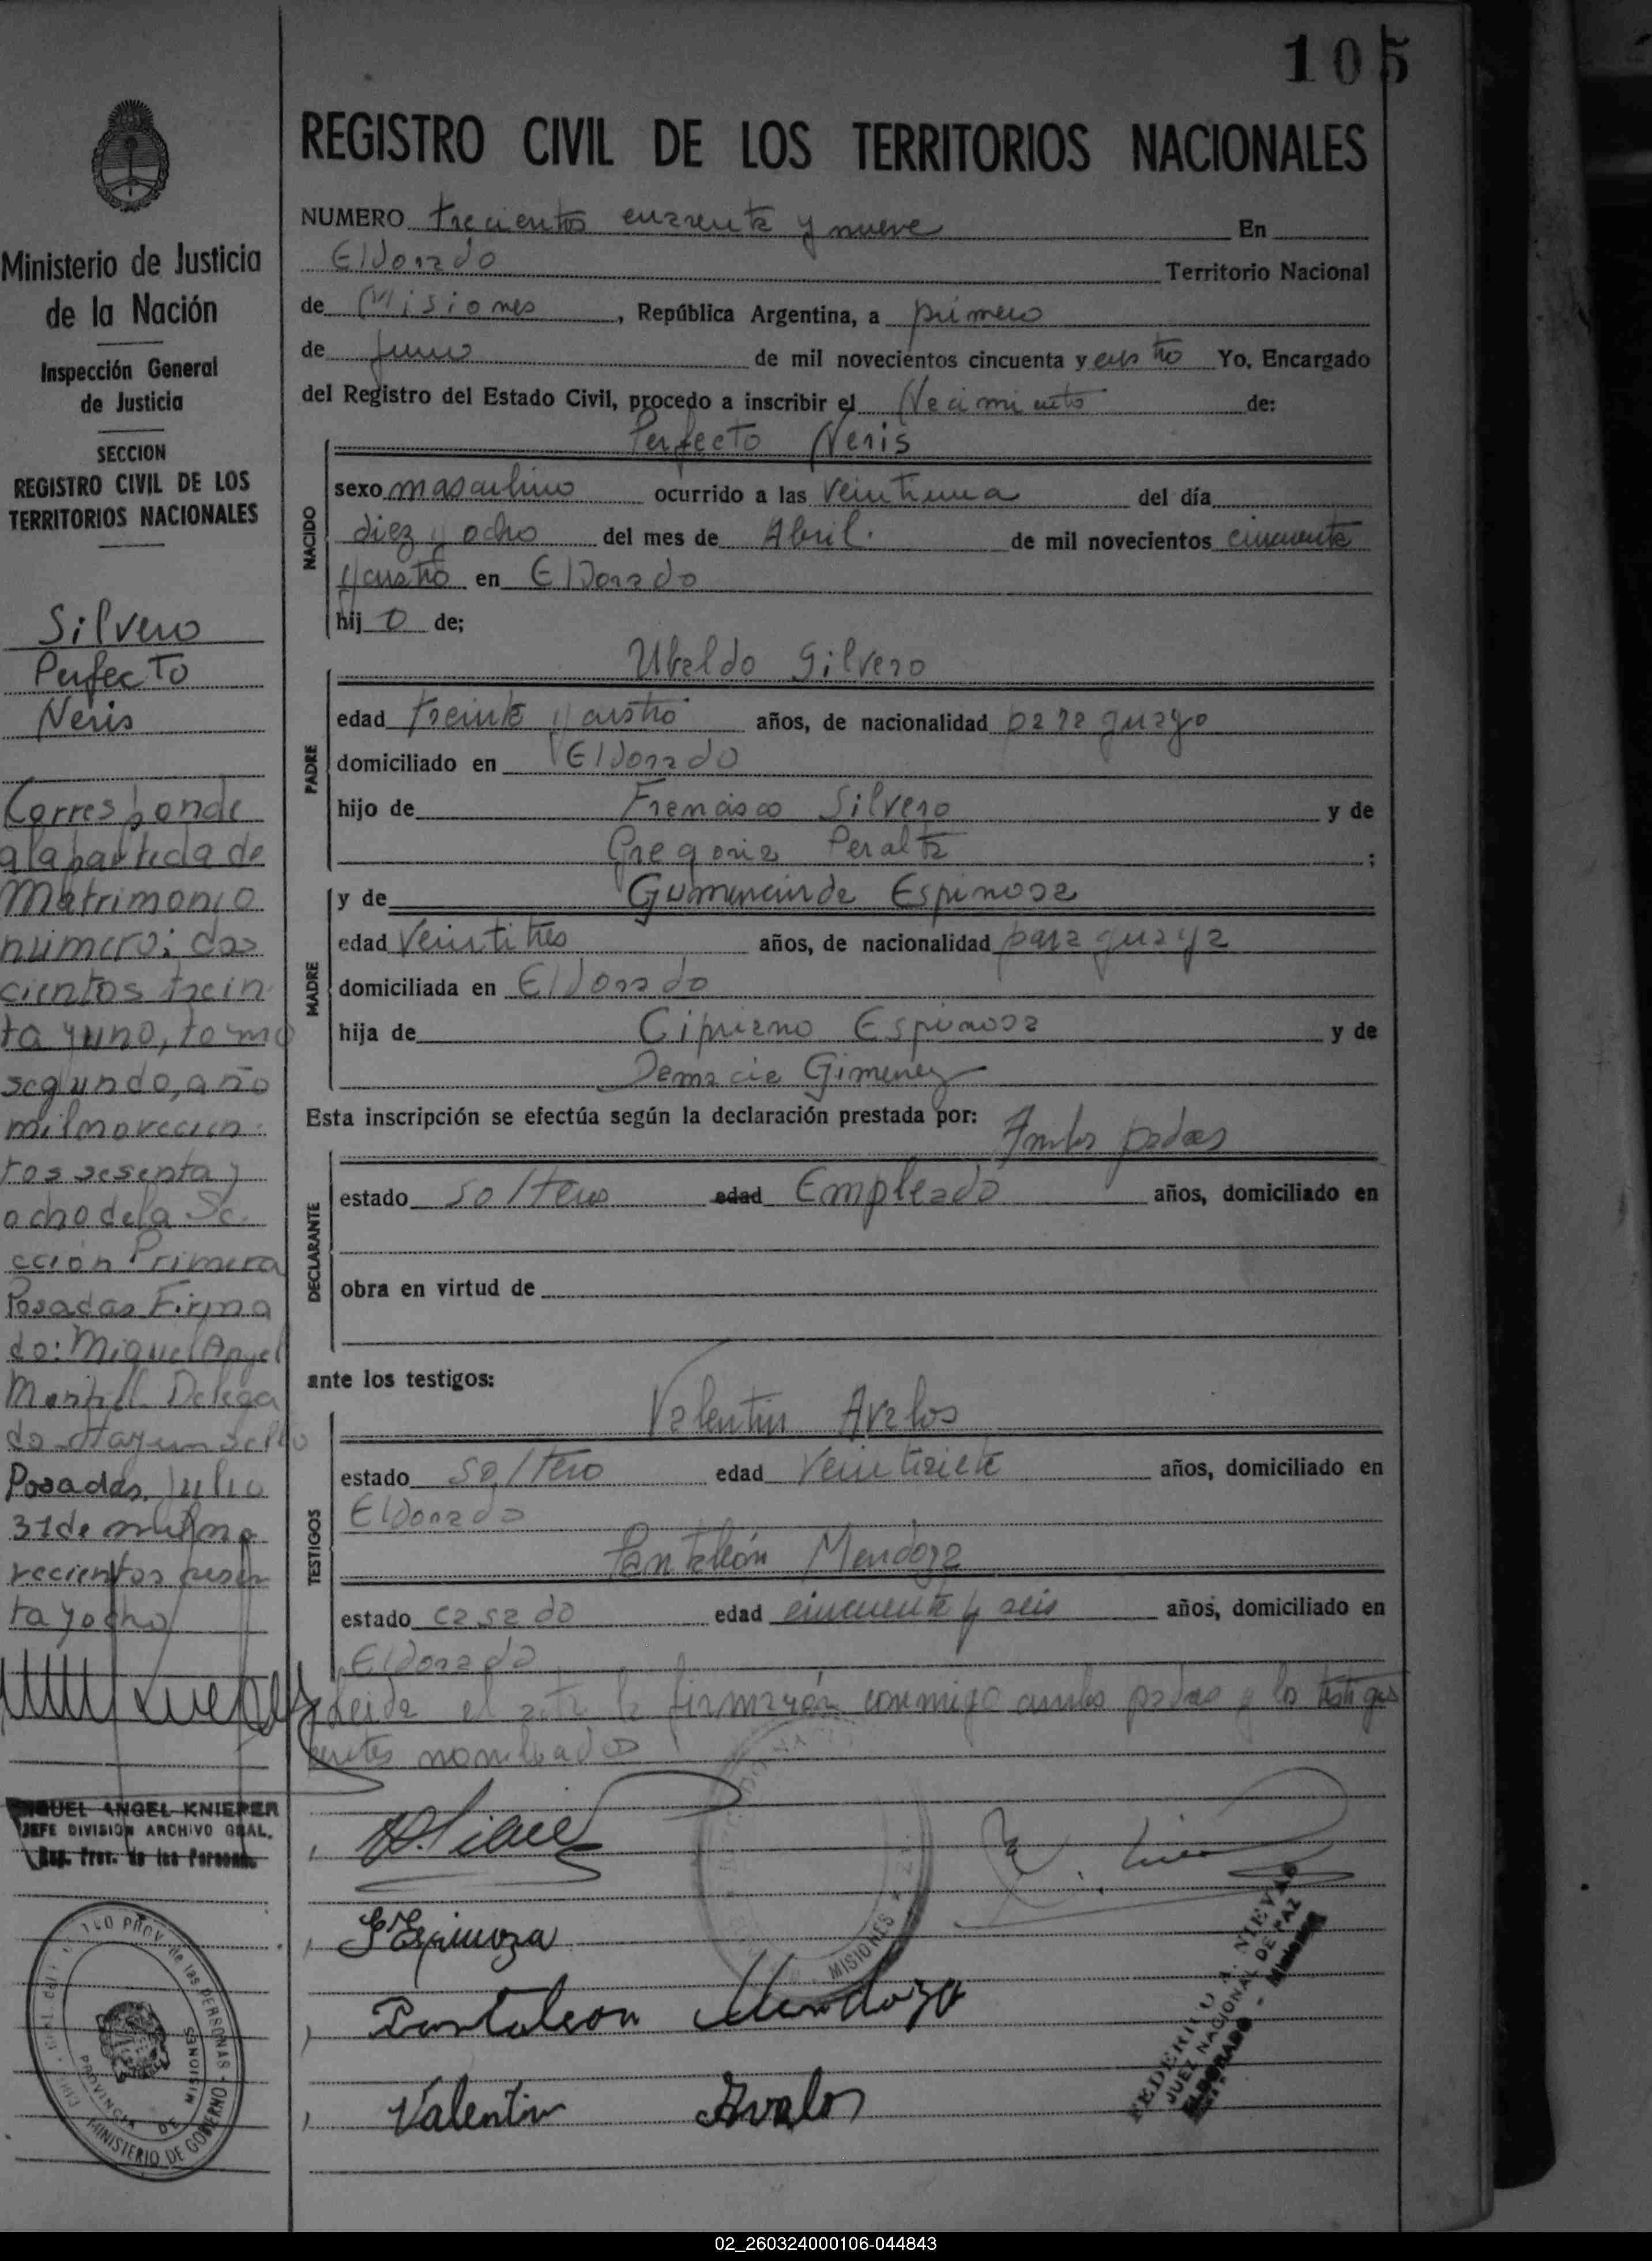 105
REGISTRO CIVIL DE LOS TERRITORIOS NACIONALES
Ministerio de Justicia
de la Nación
Inspección General
de Justicia
SECCION
REGISTRO CIVIL DE LOS
TERRITORIOS NACIONALES
Silvero
Perfecto
Neris
Corresponde
a la partida de
Matrimonio
número: dos
cientos trein
ta y uno, tomo
segundo, año
mil novecien
tos sesenta y
ocho de la Se
cción Primera
Posadas Firma
do: Miguel Angel
Delega
do Hay un sello
Posadas, Julio
31 de mil no
vecientos sesen
ta y ocho
MIGUEL ANGEL KNIEPER
JEFE DIVISION ARCHIVO GRAL.
Reg. Prov. de las Personas
PROV. de las PERSONAS - MINISTERIO DE GOBIERNO
PROVINCIA DE MISIONES
NUMERO trecientos cuarenta y nueve En
Eldorado Territorio Nacional
de Misiones, República Argentina, a primero
de Junio de mil novecientos cincuenta y cuatro Yo, Encargado
del Registro del Estado Civil, procedo a inscribir el Nacimiento de:
Perfecto Neris
NACIDO
sexo masculino ocurrido a las veintiuna del día
diez y ocho del mes de Abril. de mil novecientos cincuenta
y cuatro en Eldorado
hijo de;
Ubaldo Silvero
PADRE
edad treinta y cuatro años, de nacionalidad paraguayo
domiciliado en Eldorado
hijo de Francisco Silvero y de
Gregoria Peralta ;
y de Gumercinda Espinosa
MADRE
edad Veintitres años, de nacionalidad paraguaya
domiciliada en Eldorado
hija de Cipriano Espinosa y de
Damacia Gimenez
Esta inscripción se efectúa según la declaración prestada por: Ambos padres
DECLARANTE
estado solteros edad Empleado años, domiciliado en
obra en virtud de
ante los testigos:
Valentin Avalos
TESTIGOS
estado soltero edad Veintisiete años, domiciliado en
Eldorado
Pantaleón Mendoza
estado casado edad cincuenta y seis años, domiciliado en
Eldorado
Leida el acta la firmarón conmigo ambos padres y los testigos
antes nombrados
G Espinoza
Pantaleon Mendoza
Valentin Avalos
MISIONES
FEDERICO A. NIEVAS
JUEZ NACIONAL DE PAZ
ELDORADO - Misiones
02_260324000106-044843